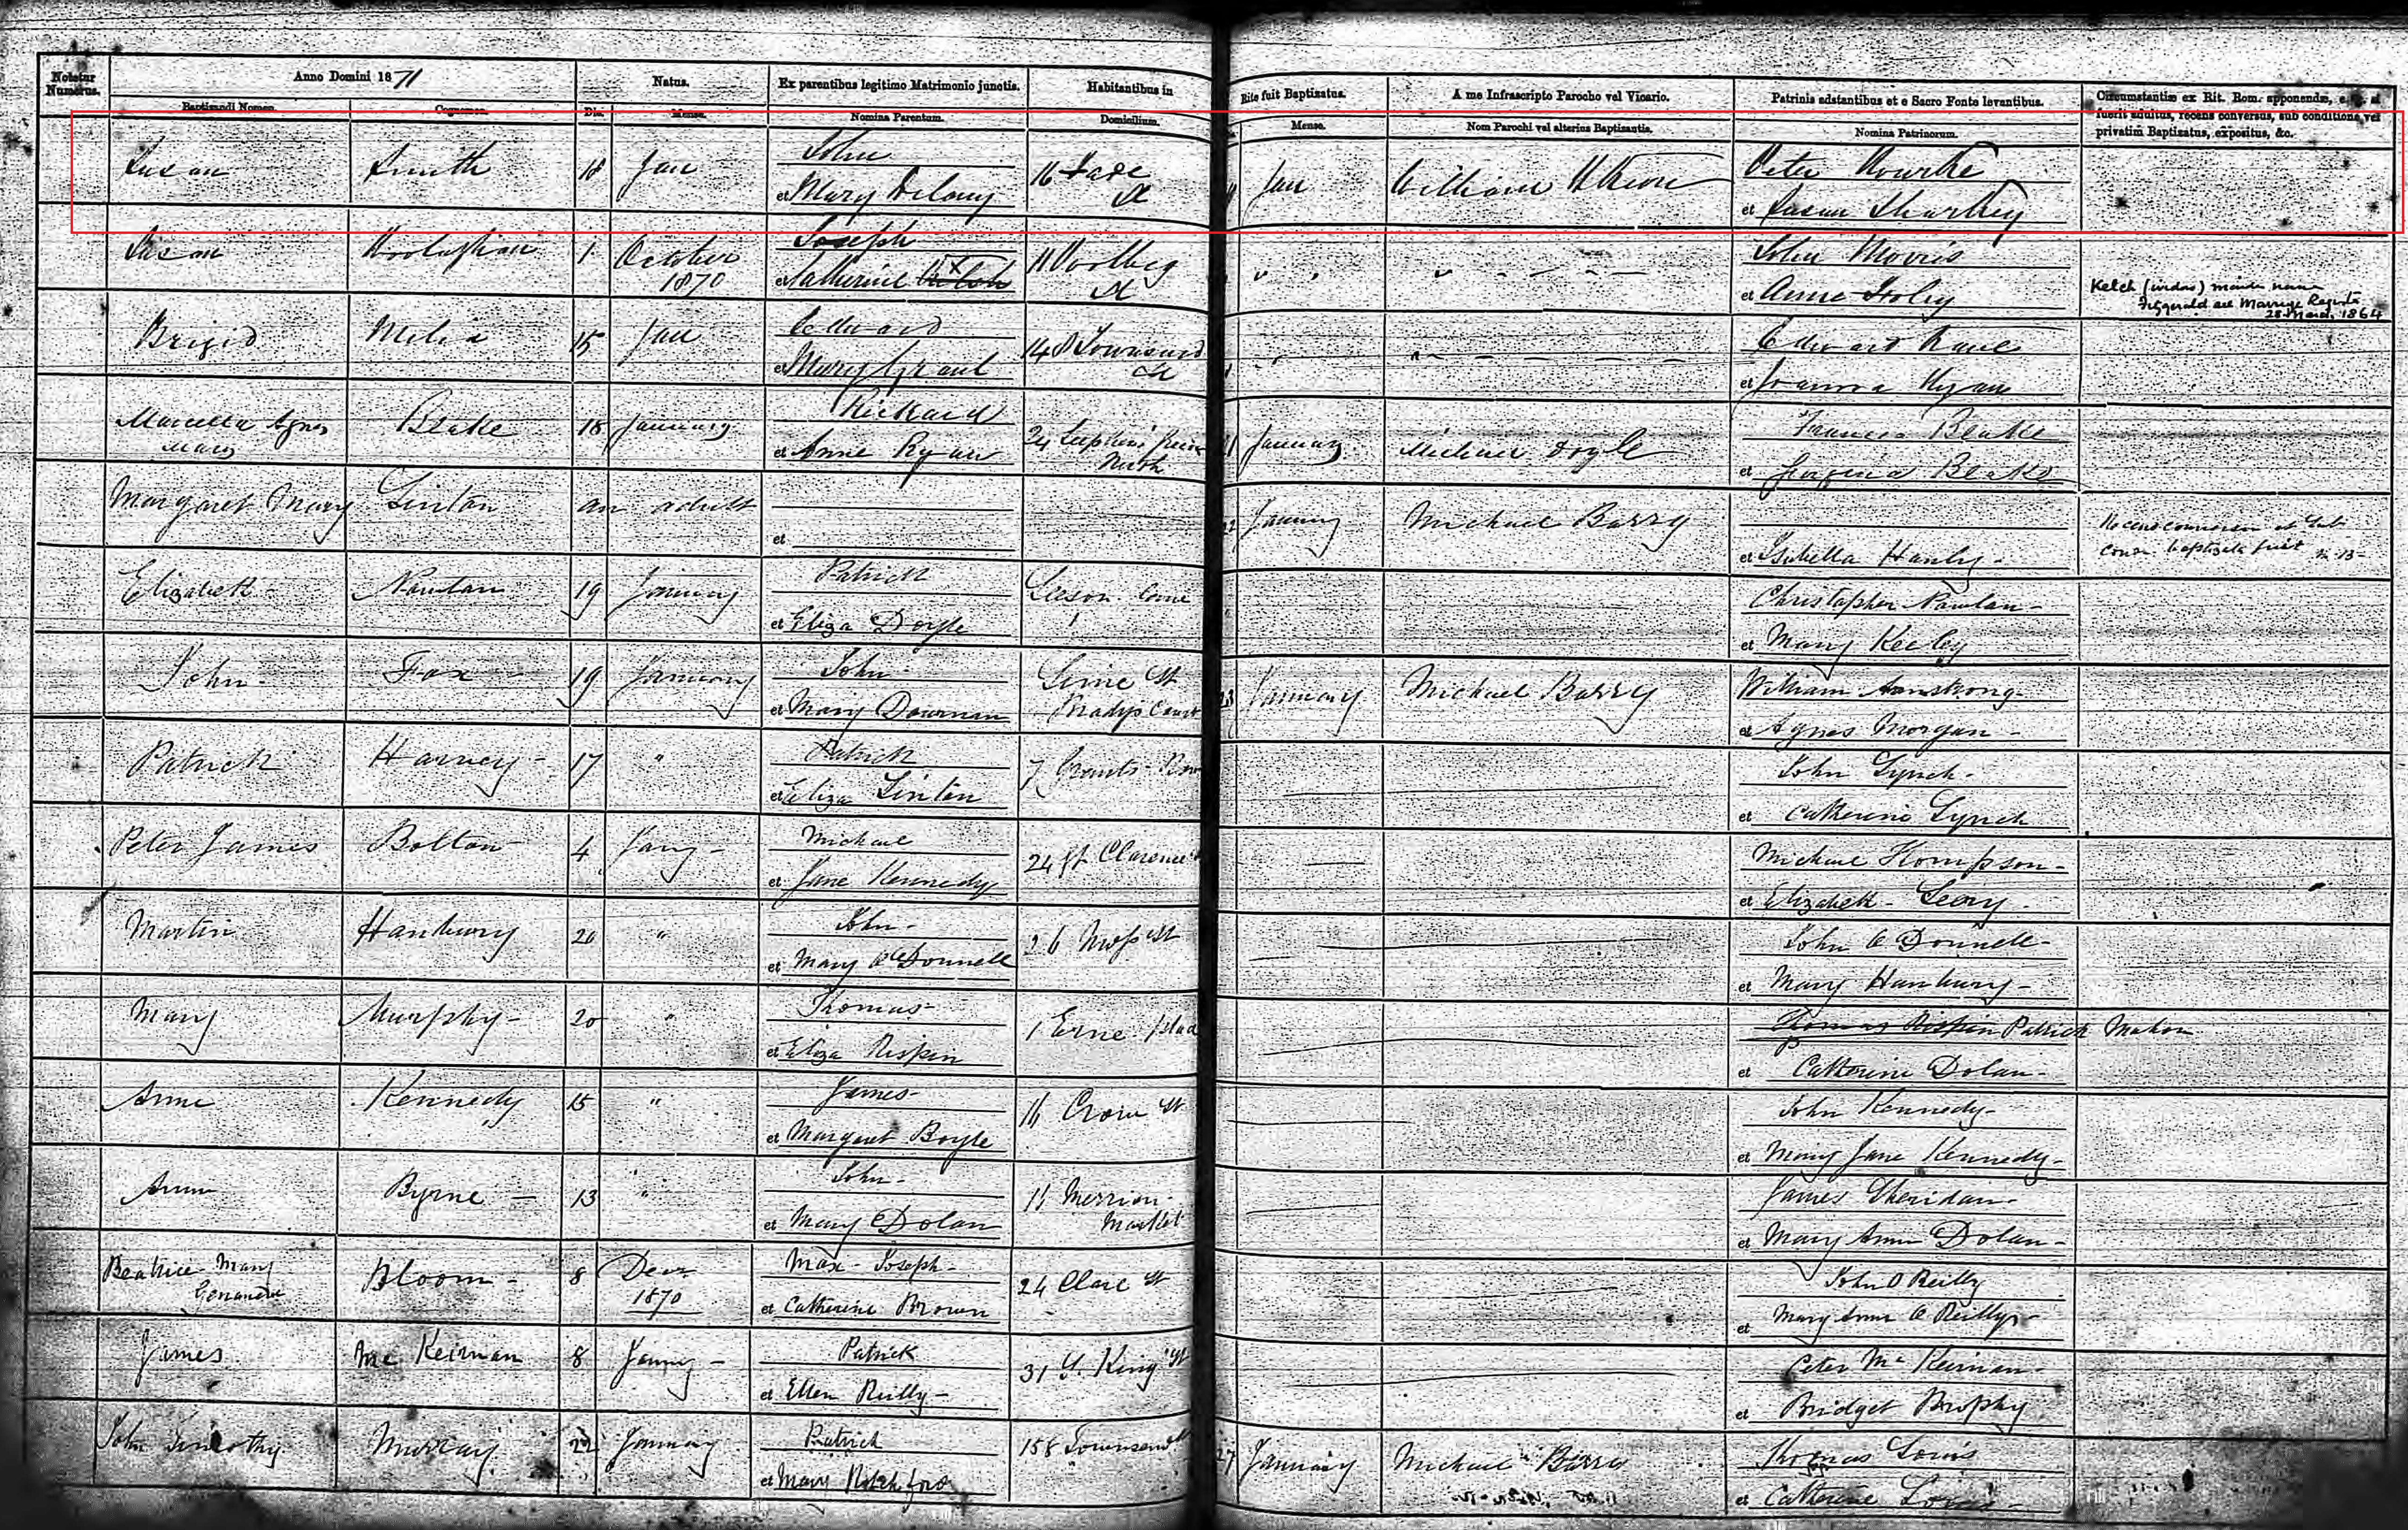 Notetur Numerus.
Anno Domini 1871
Natus.
Ex parentibus legitimo Matrimonio junctis.
Habitantibus in
Rite fuit Baptizatus.
A me Infrascripto Parocho vel Vicario.
Patrinis adstantibus et e Sacro Fonte levantibus.
Circumstantiæ ex Rit. Rom. apponendæ, e. g. si fuerit adultus, recens conversus, sub conditione, vel privatim Baptizatus, expositus, &c.
Baptizandi Nomen.
Cognomen.
Die.
Mense.
Nomina Parentum.
Domicilium.
Mense.
Nom Parochi vel alterius Baptizantis.
Nomina Patrinorum.
Susan Smith 18 Jan John 16 St Jan William Peter Rourke
et Mary Delany et Susan Sharkey
Susan 1 October 1870 Joseph 11 St " " John Morris
et Catherine et Anne Foley
Kelch (widow) maiden name
Fitzgerald see Marriage Register
28 March 1864
Brigid Melia 15 Jan Edward 148 Townsend St " Edward Kane
et Mary Grant et Joanna Ryan
Marcella Agnes Mary Blake 18 January Richard 24 Stephens Green North 21 January Michael Doyle Francis Blake
et Anne Ryan et Georgina Blake
Margaret Mary Linton an adult 22 January Michael Barry
et et Isabella Hanly -
Elizabeth - Nowlan 19 January Patrick Leeson Christopher Nowlan -
et Eliza Doyle et Mary Keeley
John - Fox - 19 January John - Lime St Bradys Court 23 January Michael Barry William Armstrong -
et Mary Dowman et Agnes Morgan -
Patrick Harvey - 17 " Patrick 7 Grants Row John Lynch -
et Eliza Linton et Catherine Lynch
Peter James Bolton 4 Jany - Michael 24 Gt Clarence Michael Thompson -
et Jane Kennedy et Elizabeth - Geory -
Martin Hanbury 20 " John - 26 Moss St John O Donnell -
et Mary O'Donnell et Mary Hanbury -
Mary Murphy - 20 " Thomas - 1 Erne place Thomas Rispin Patrick Mahon
et Eliza Rispin et Catherine Dolan -
Anne Kennedy 15 " James - 16 Crow St John Kennedy -
et Margaret Boyle et Mary Jane Kennedy -
Anne Byrne - 13 " John - 11 Merrion Market James Sheridan -
et Mary Dolan et Mary Anne Dolan -
Beatrice Mary Genevieve Bloom - 8 Decr 1870 Max - Joseph - 24 Clare St John O Reilly
et Catherine Brown et Mary Anne O Reilly -
James Mc Keirnan 8 Jany - Patrick 31 S. King St Peter Mc Keirnan -
et Ellen Reilly - et Bridget Brophy
John Timothy Murray 22 January Patrick 158 Townsend St 27 January Michael Barry Thomas Lewis
et Mary Rochford et Catherine